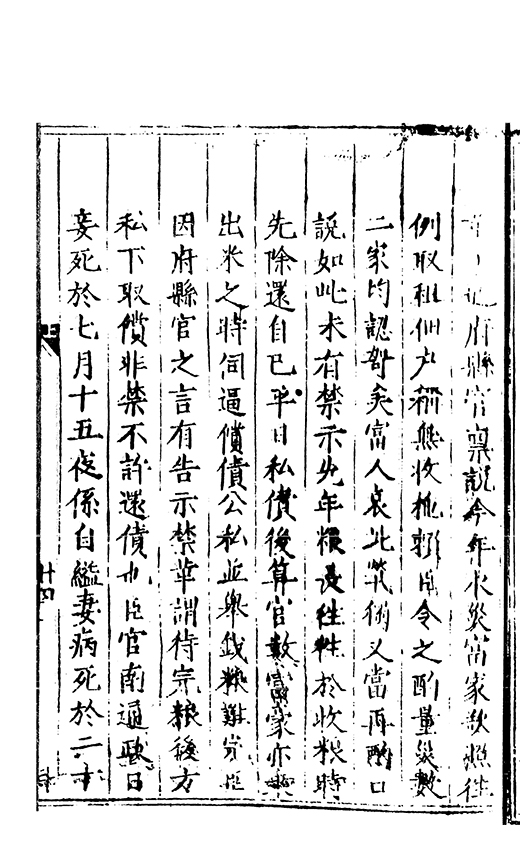 府縣官稟說今年水災富家欲照往
例取租佃户稱無收抵賴臣令之酌量災數
二家均認哿矣富人哀此煢獨又當再酌口
說如此未有禁示先年糧長往往於收粮時
先除還自已平日私債後算官數富家亦
出米之時伺逼償債公私並舉錢粮難完臣
因府縣官之言有告示禁革謂待完粮後方
私下取償非禁不許還債也臣官南通政日
妾死於七月十五夜係自縊妻病死於二十
廿四